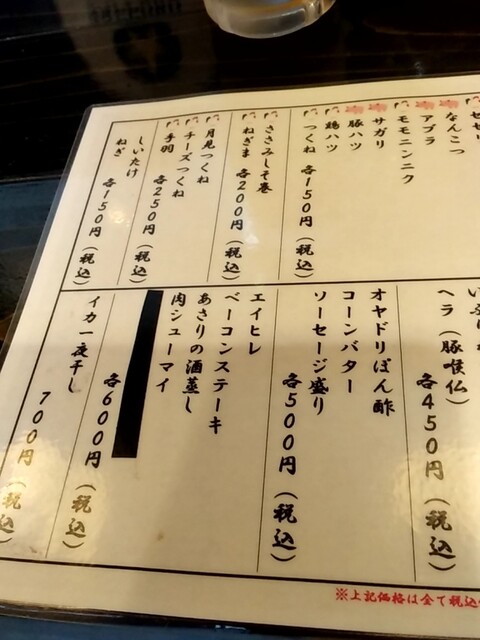 なんこつ
アブラ
モモニンニク
サガリ
豚ハツ
鶏ハツ
つくね 各150円（税込）
ささみしそ巻
ねぎま 各200円（税込）
月見つくね
チーズつくね
手羽 各250円（税込）
しいたけ
ねぎ 各150円（税込）
ヘラ（豚喉仏）
各450円（税込）
オヤドリぽん酢
コーンバター
ソーセージ盛り
各500円（税込）
エイヒレ
ベーコンステーキ
あさりの酒蒸し
肉シューマイ
各600円（税込）
イカ一夜干し
700円（税込）
※上記価格は全て税込